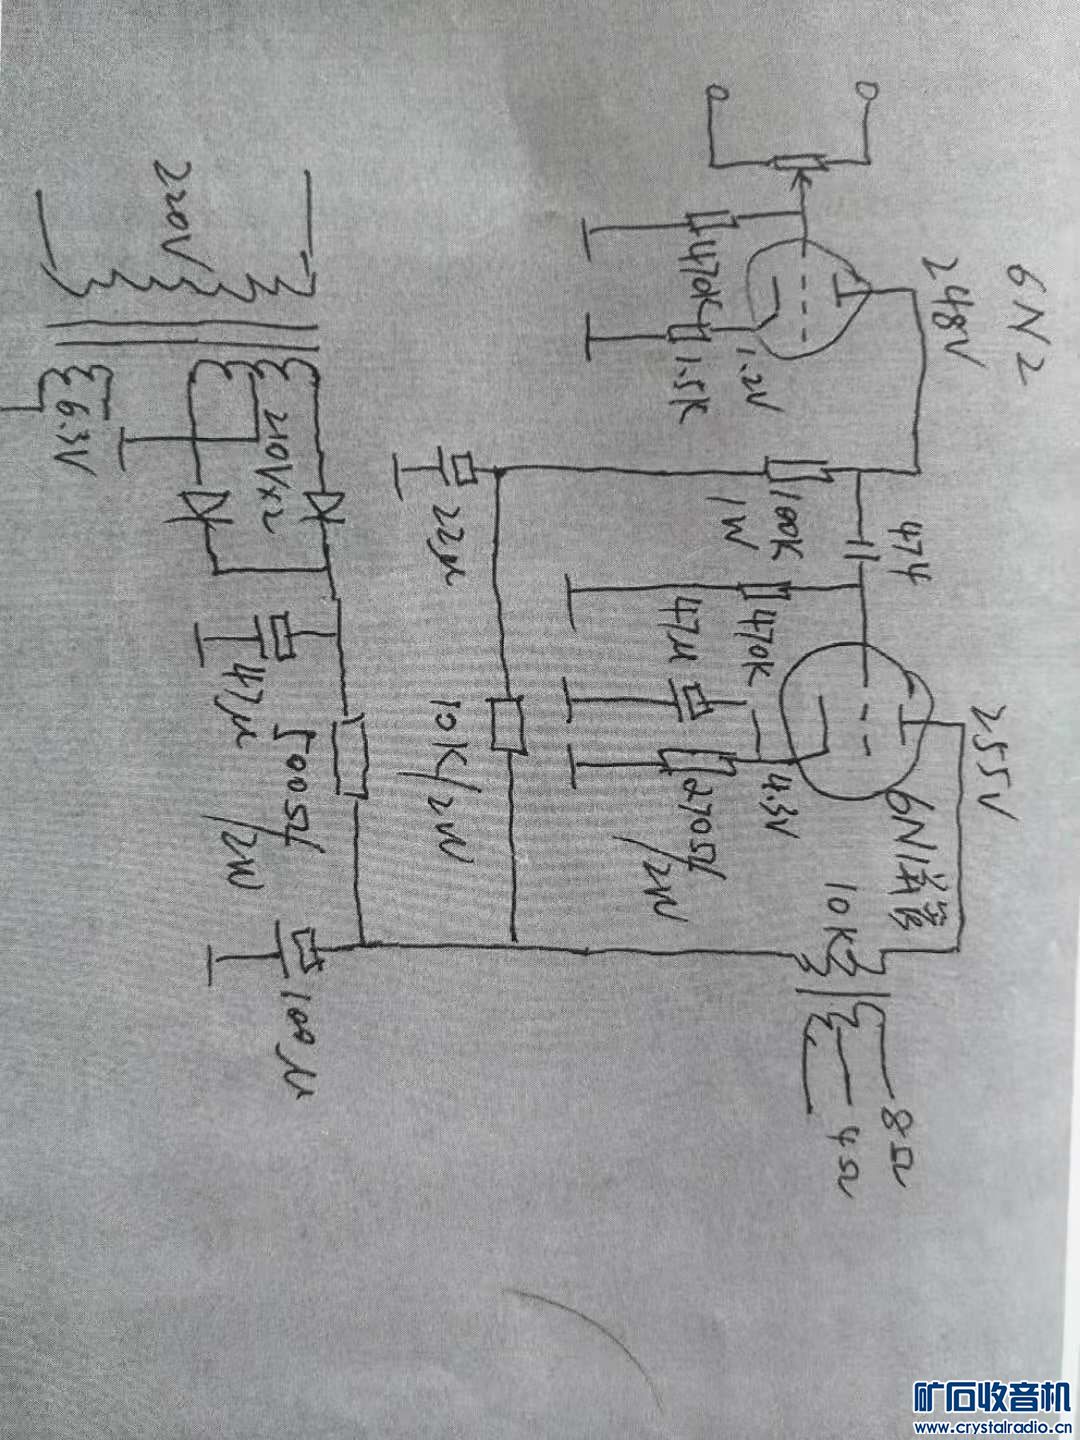 6N2
248V
470K
1.2V
1.5K
100K
1W
474
470K
47μ
4.3V
270Ω/2W
255V
6N1并管
10K
8Ω
4Ω
22μ
10K/2W
220V
6.3V
210V×2
47μ
500Ω/2W
100μ
矿石收音机
www.crystalradio.cn